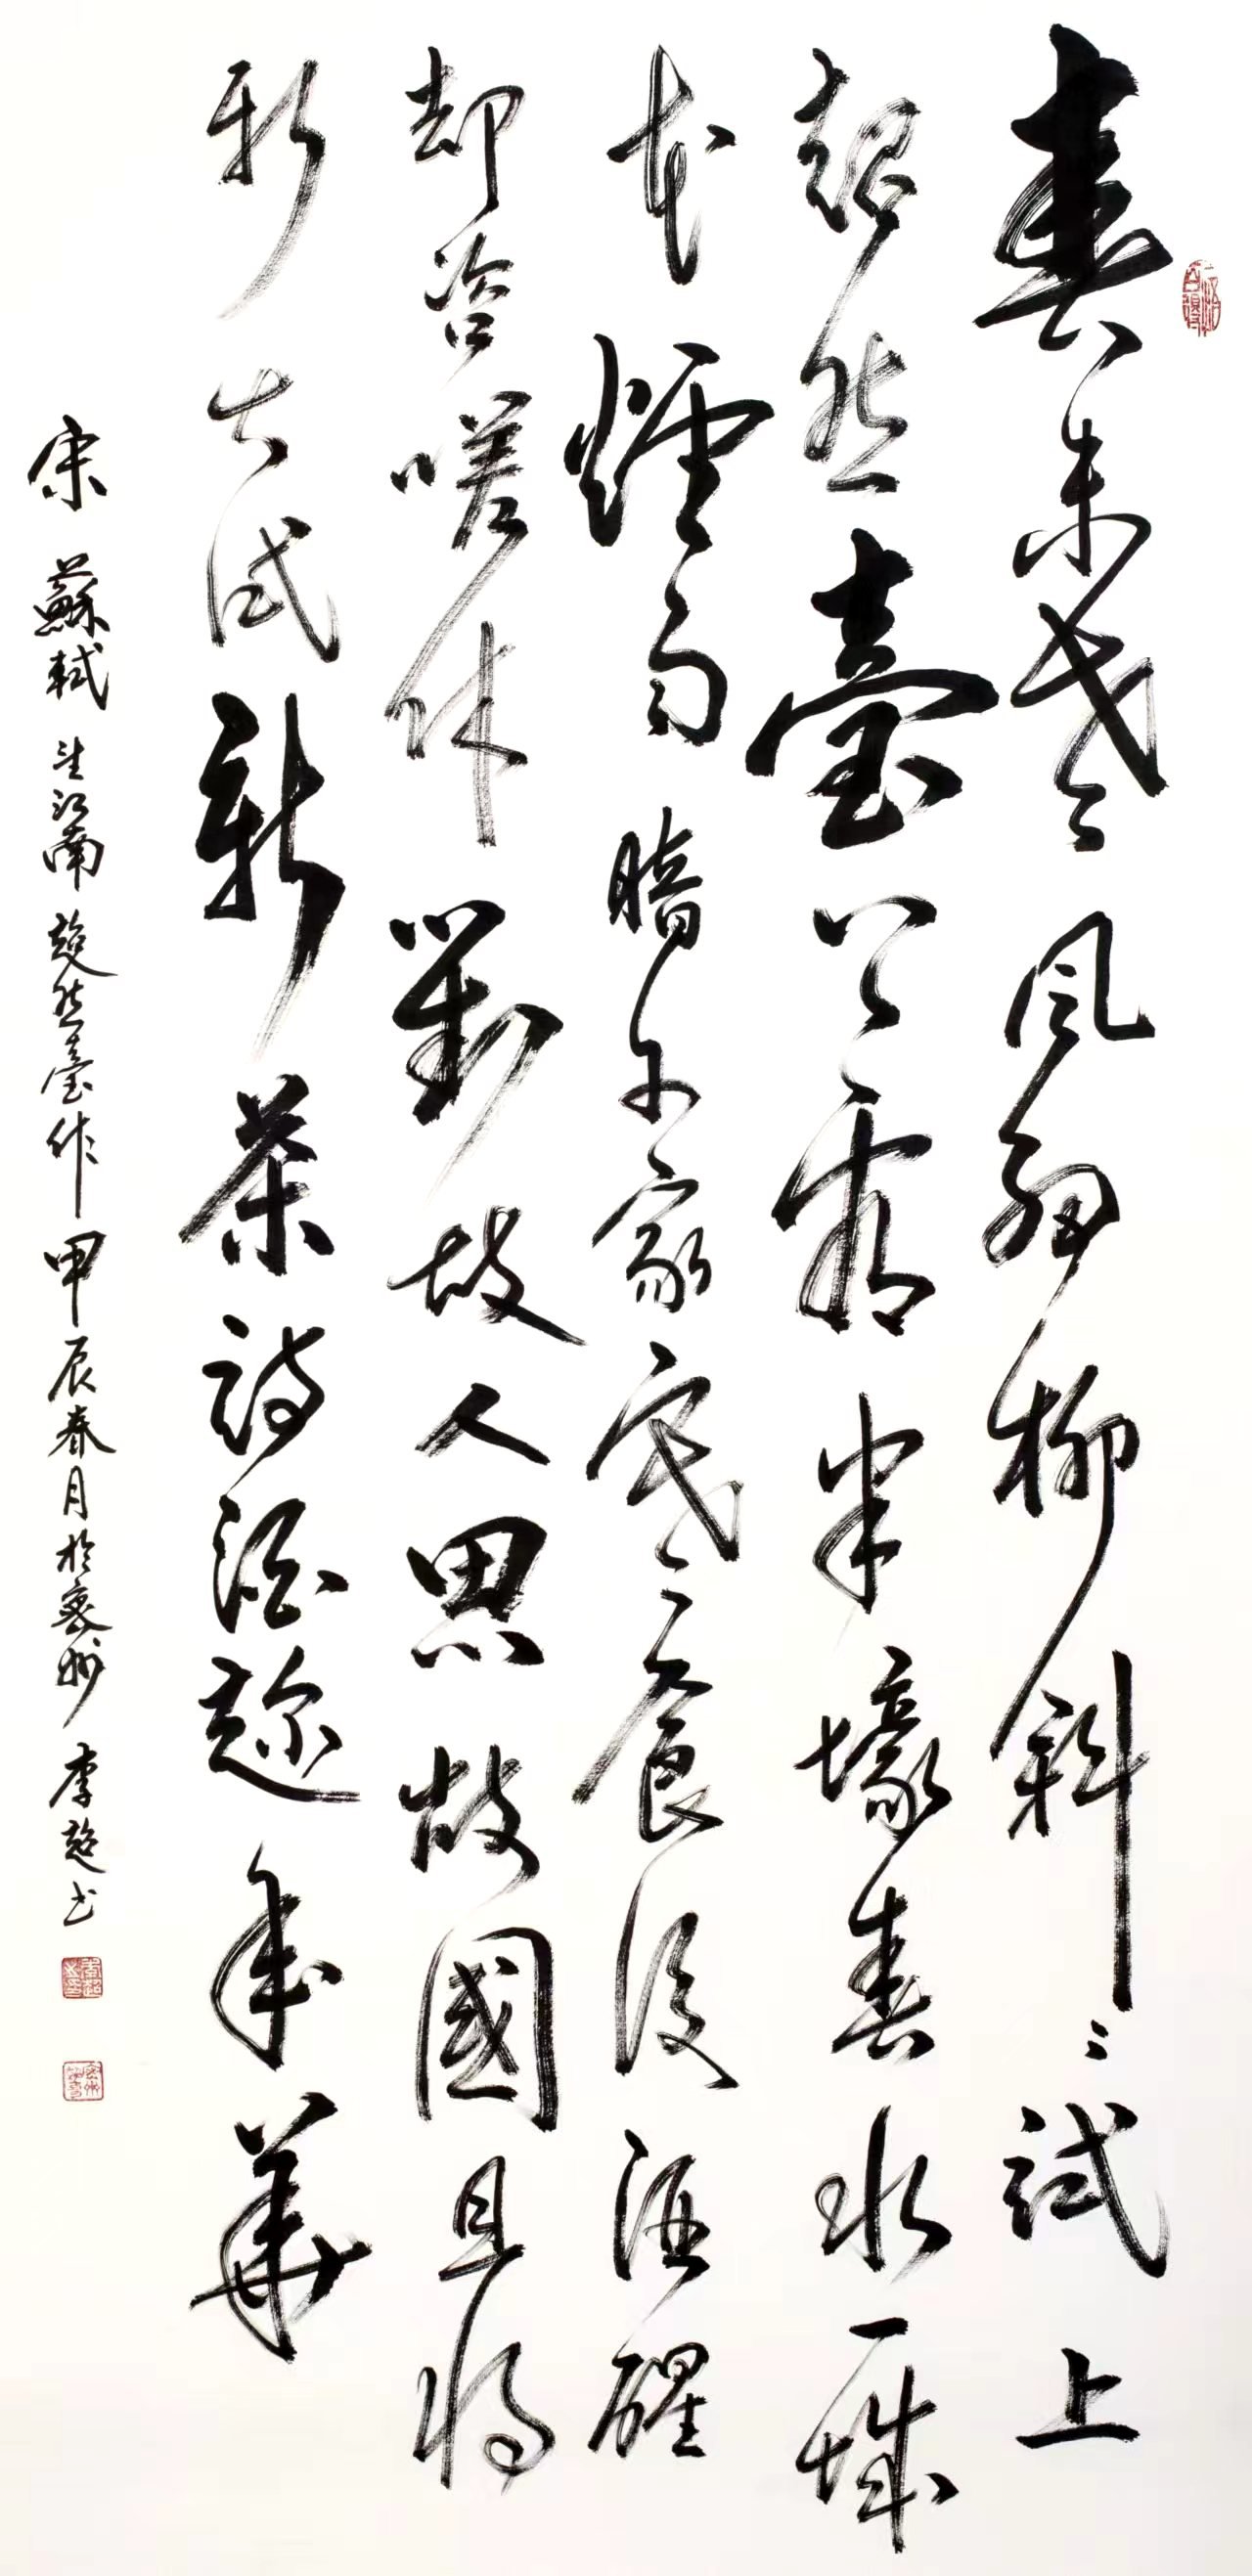 春未老風細柳斜々試上
超然臺上看半壕春水一城
花煙雨暗千家寒食後酒醒
却咨嗟休對故人思故國且將
新火試新茶詩酒趁年華
宋 蘇軾 望江南 超然臺作 甲辰春月於州 李超书